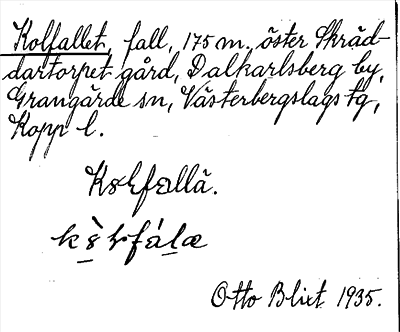 Kolfallet, fall, 175 m. öster Skräd-
dartorpet gård, Dalkarlsberg by,
Grangärde sn, Västerbergslags tg,
Kopp l.
Kolfallä.
Otto Blixt 1935.